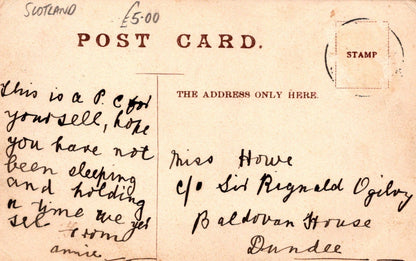 SCOTLAND
£5.00
POST CARD.
STAMP
THE ADDRESS ONLY HERE.
This is a P.C for
yourself, hope
you have not
been sleeping
and holding
a time we yet
set from
annie
Miss Howe
c/o Sir Reginald Ogilvy
Baldovan House
Dundee